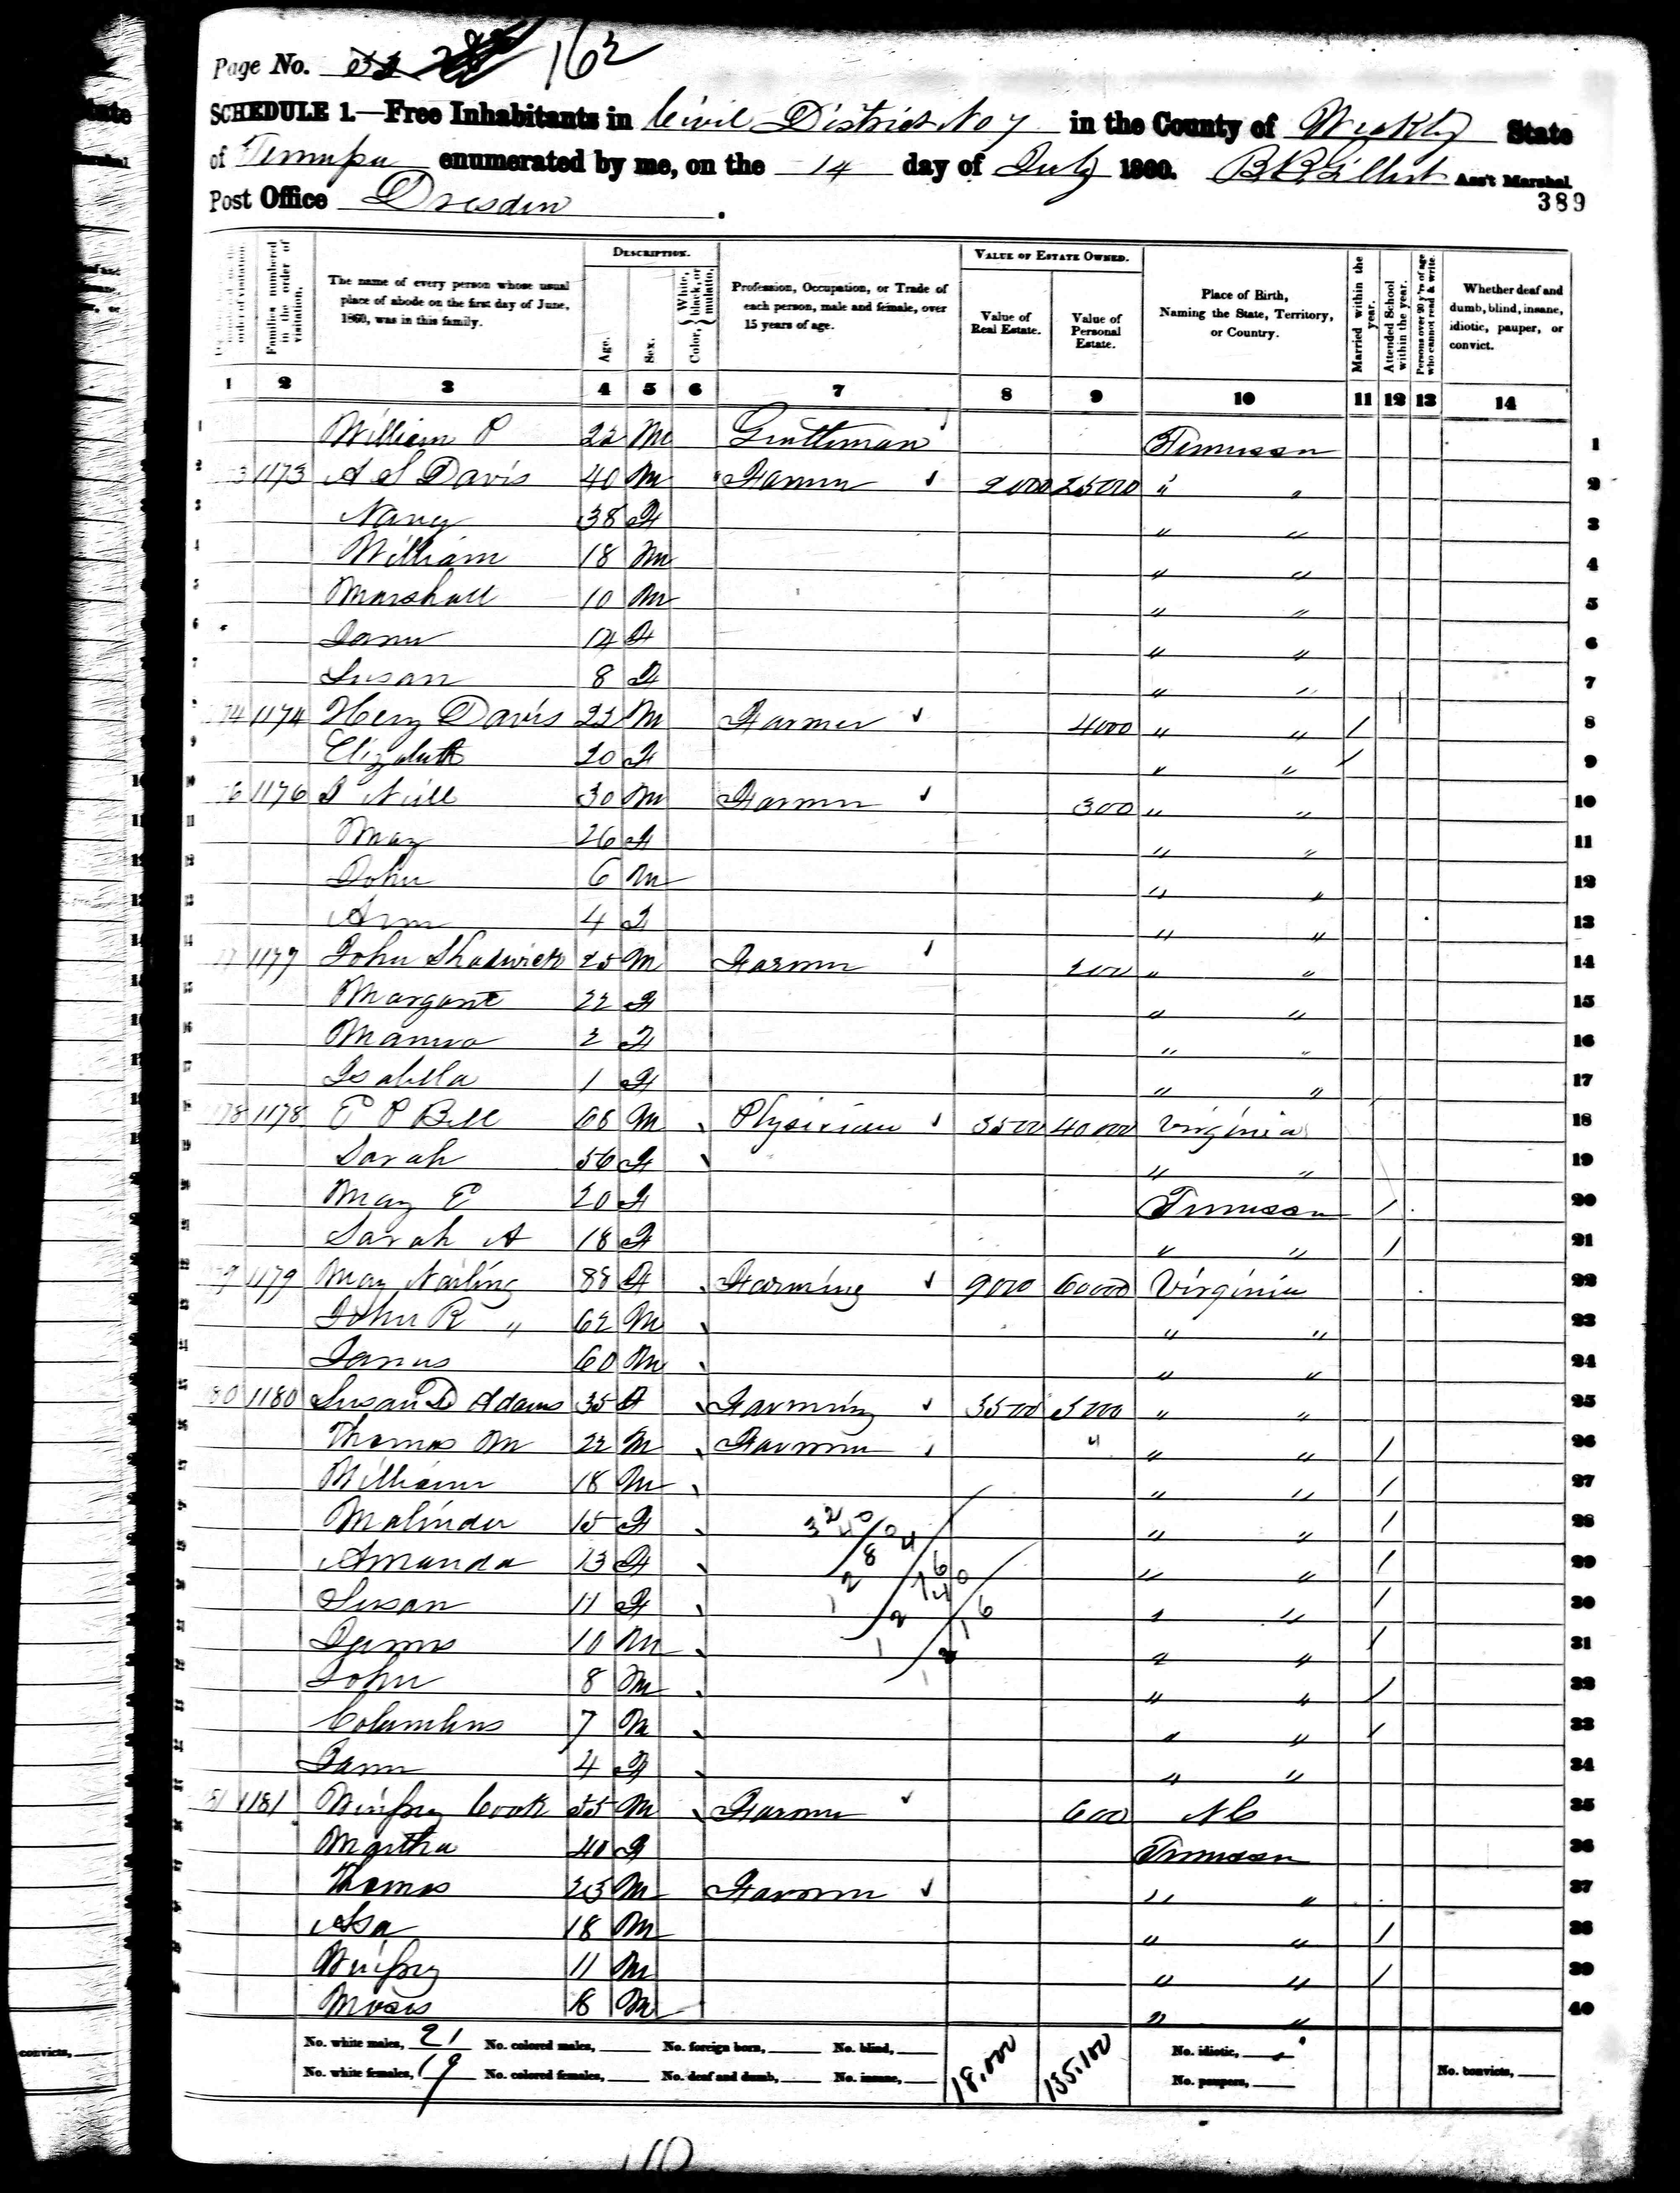 Page No. 162
SCHEDULE 1.—Free Inhabitants in Civil District No 7 in the County of Weakly State
of enumerated by me, on the 14 day of July 1860. Ass't Marshal.
Post Office Dresden . 389
DESCRIPTION. VALUE OF ESTATE OWNED.
Families numbered in the order of visitation. The name of every person whose usual place of abode on the first day of June, 1860, was in this family. Age. Sex. Color, White, black, or mulatto. Profession, Occupation, or Trade of each person, male and female, over 15 years of age. Value of Real Estate. Value of Personal Estate. Place of Birth, Naming the State, Territory, or Country. Married within the year. Attended School within the year. Persons over 20 y'rs of age who cannot read & write. Whether deaf and dumb, blind, insane, idiotic, pauper, or convict.
1 2 3 4 5 6 7 8 9 10 11 12 13 14
1 William P 22 M Gentleman Tennessee 1
2 1173 A S Davis 40 M Farmer 2000 25000 " " 2
3 Nancy 38 F " " 3
4 William 18 M " " 4
5 Marshall 10 M " " 5
6 14 F " " 6
7 Susan 8 F " " 7
74 1174 Henry Davis 22 M Farmer 4000 " " / 8
9 Elizabeth 20 F " " / 9
10 6 1176 Neill 30 M Farmer 300 " " 10
11 Mary 26 F " " 11
12 John 6 M " " 12
13 Ann 4 F " " 13
14 1177 John Shadwick 25 M Farmer 200 " " 14
15 Margaret 22 F " " 15
16 2 F " " 16
17 Isabella 1 F " " 17
178 1178 E P Bell 68 M Physician 3500 40000 Virginia 18
19 Sarah 56 F " " 19
20 Mary E 20 F Tennessee / 20
21 Sarah A 18 F " " / 21
9 1179 Mary Nailing 88 F Farming 9000 60000 Virginia 22
23 John R " 62 M " " 23
James 60 M " " 24
80 1180 Susan D Adams 35 F Farming 3500 5000 " " 25
Thomas M 22 M Farmer " " " / 26
William 18 M " " / 27
Malinder 15 F " " / 28
Amanda 13 F " " / 29
Susan 11 F " " / 30
James 10 M " " / 31
John 8 M " " / 32
Columbus 7 M " " / 33
4 F " " 34
81 1181 Winfrey Cook 55 M Farmer 600 N C 35
Martha 40 F Tennessee 36
Thomas 23 M Farmer " " 37
Asa 18 M " " / 38
Winfrey 11 M " " / 39
Moses 8 M " " 40
No. white males, 21 No. colored males, No. foreign born, No. blind, 18,000 135,100 No. idiotic,
No. white females, 19 No. colored females, No. deaf and dumb, No. insane, No. paupers, No. convicts,